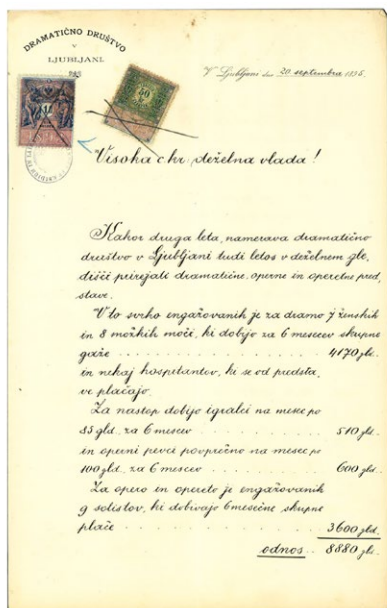 DRAMATIČNO DRUŠTVO
V
LJUBLJANI.
V Ljubljani dne 20. septembra 1895.
Visoka c. kr. deželna vlada!
Kakor druga leta, namerava dramatično
društvo v Ljubljani tudi letos v deželnem gle-
dišči prirejati dramatične, operne in operetne pred-
stave.
V to svrho engažovanih je za dramo 7 ženskih
in 8 možkih moči, ki dobijo za 6 mesecev skupne
gaže . . . . . . . . . . 4170 gld.
in nekaj hospitantov, ki se od predsta-
ve plačajo.
Za nastop dobijo igralci na mesec po
85 gld. za 6 mesecev . . . . . 510 gld.
in operni pevci povprečno na mesec po
100 gld. za 6 mesecev . . . . . 600 gld.
Za opero in opereto je engažovanih
9 solistov, ki dobivajo 6 mesečne skupne
plače . . . . . . . . . . 3600 gld.
odnos . . 8880 gld.